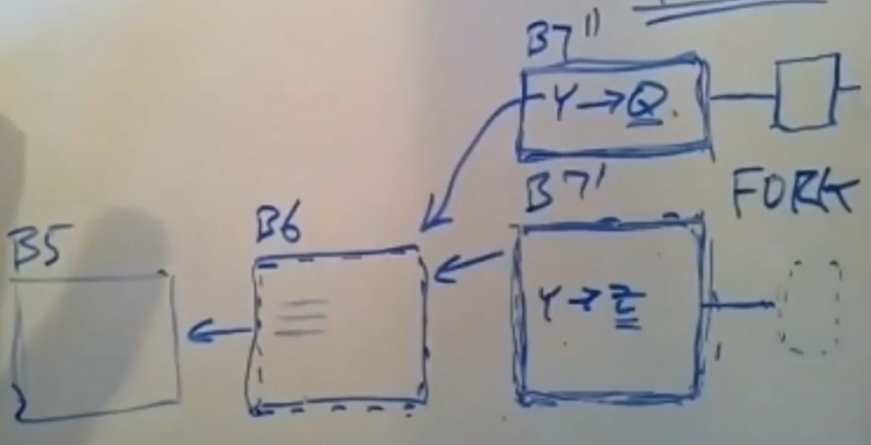 B7"
Y→Q.
B7'
FORK
B6
B5
Y→Z